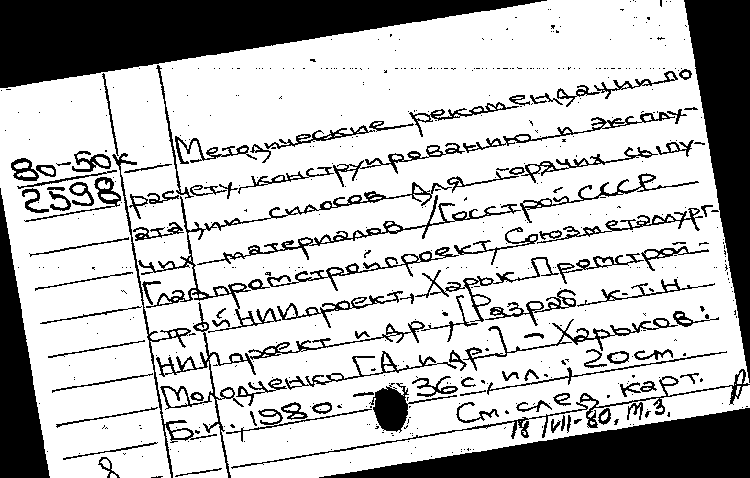 80-50к
2598
Методические рекомендации по
расчету, конструированию и эксплу-
атации силосов для горячих сыпу-
чих материалов / Госстрой СССР.
Главпромстройпроект, Союзметаллург-
стройНИИпроект, Харьк. Промстрой-
НИИпроект и др.; [Разраб. к.т.н.
Молодченко Г.А. и др.]. - Харьков:
Б.и., 1980. - 36с., ил.; 20см.
См. след. карт.
18/VII-80. м.з.